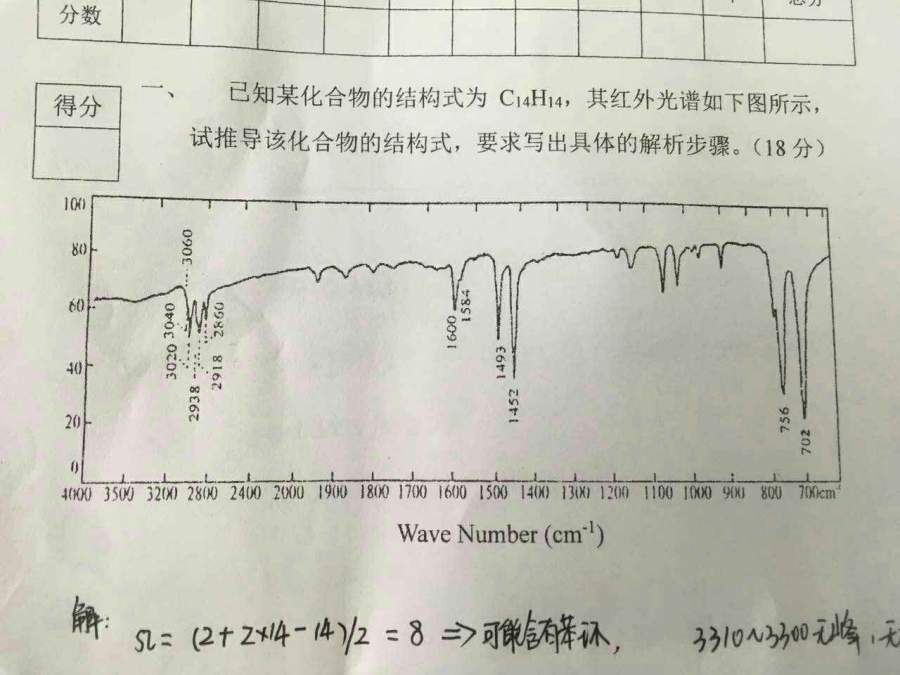 分数
得分
一、 已知某化合物的结构式为 C14H14，其红外光谱如下图所示，
试推导该化合物的结构式，要求写出具体的解析步骤。（18 分）
100
80
60
40
20
0
3060
3040
3020
2938
2918
2860
1600
1584
1493
1452
756
702
4000 3500 3200 2800 2400 2000 1900 1800 1700 1600 1500 1400 1300 1200 1100 1000 900 800 700cm-1
Wave Number (cm-1)
解:
Ω = (2+2×14-14)/2 = 8 ⇒ 可能含有苯环, 3310~3300无峰,无